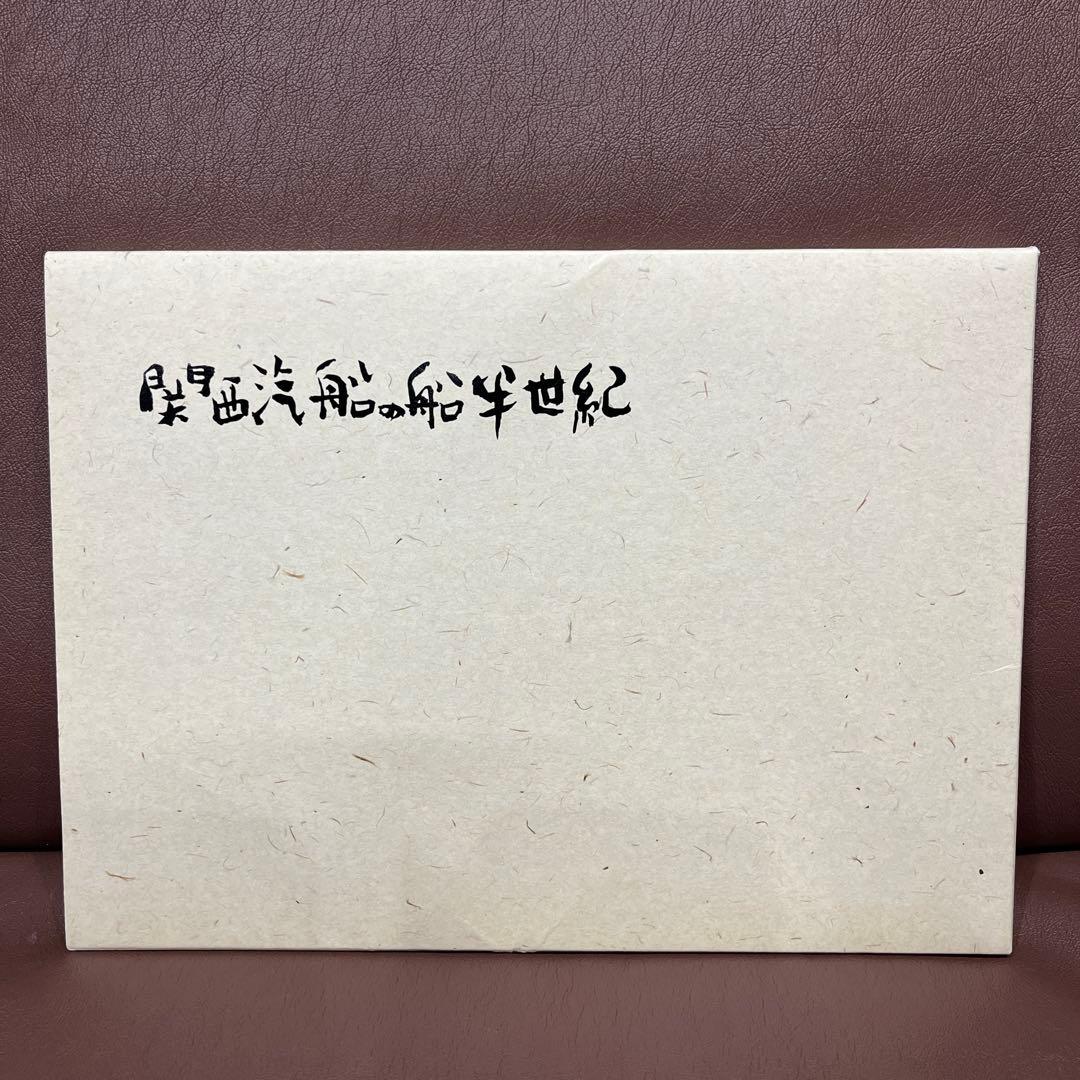 関西汽船の船半世紀